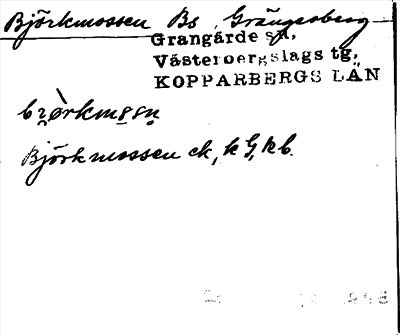 Björkmossen Bs Grängesberg
Grangärde sn,
Västerbergslags tg,
KOPPARBERGS LÄN
Björkmossen ek, k G, kb.